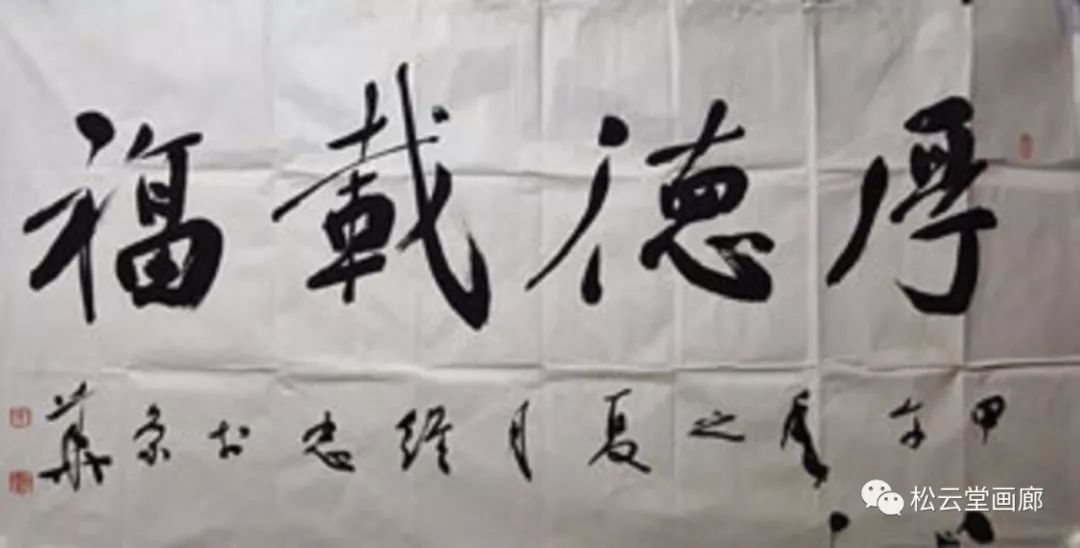 厚德载福
甲午年之夏月继忠於京华
松云堂画廊